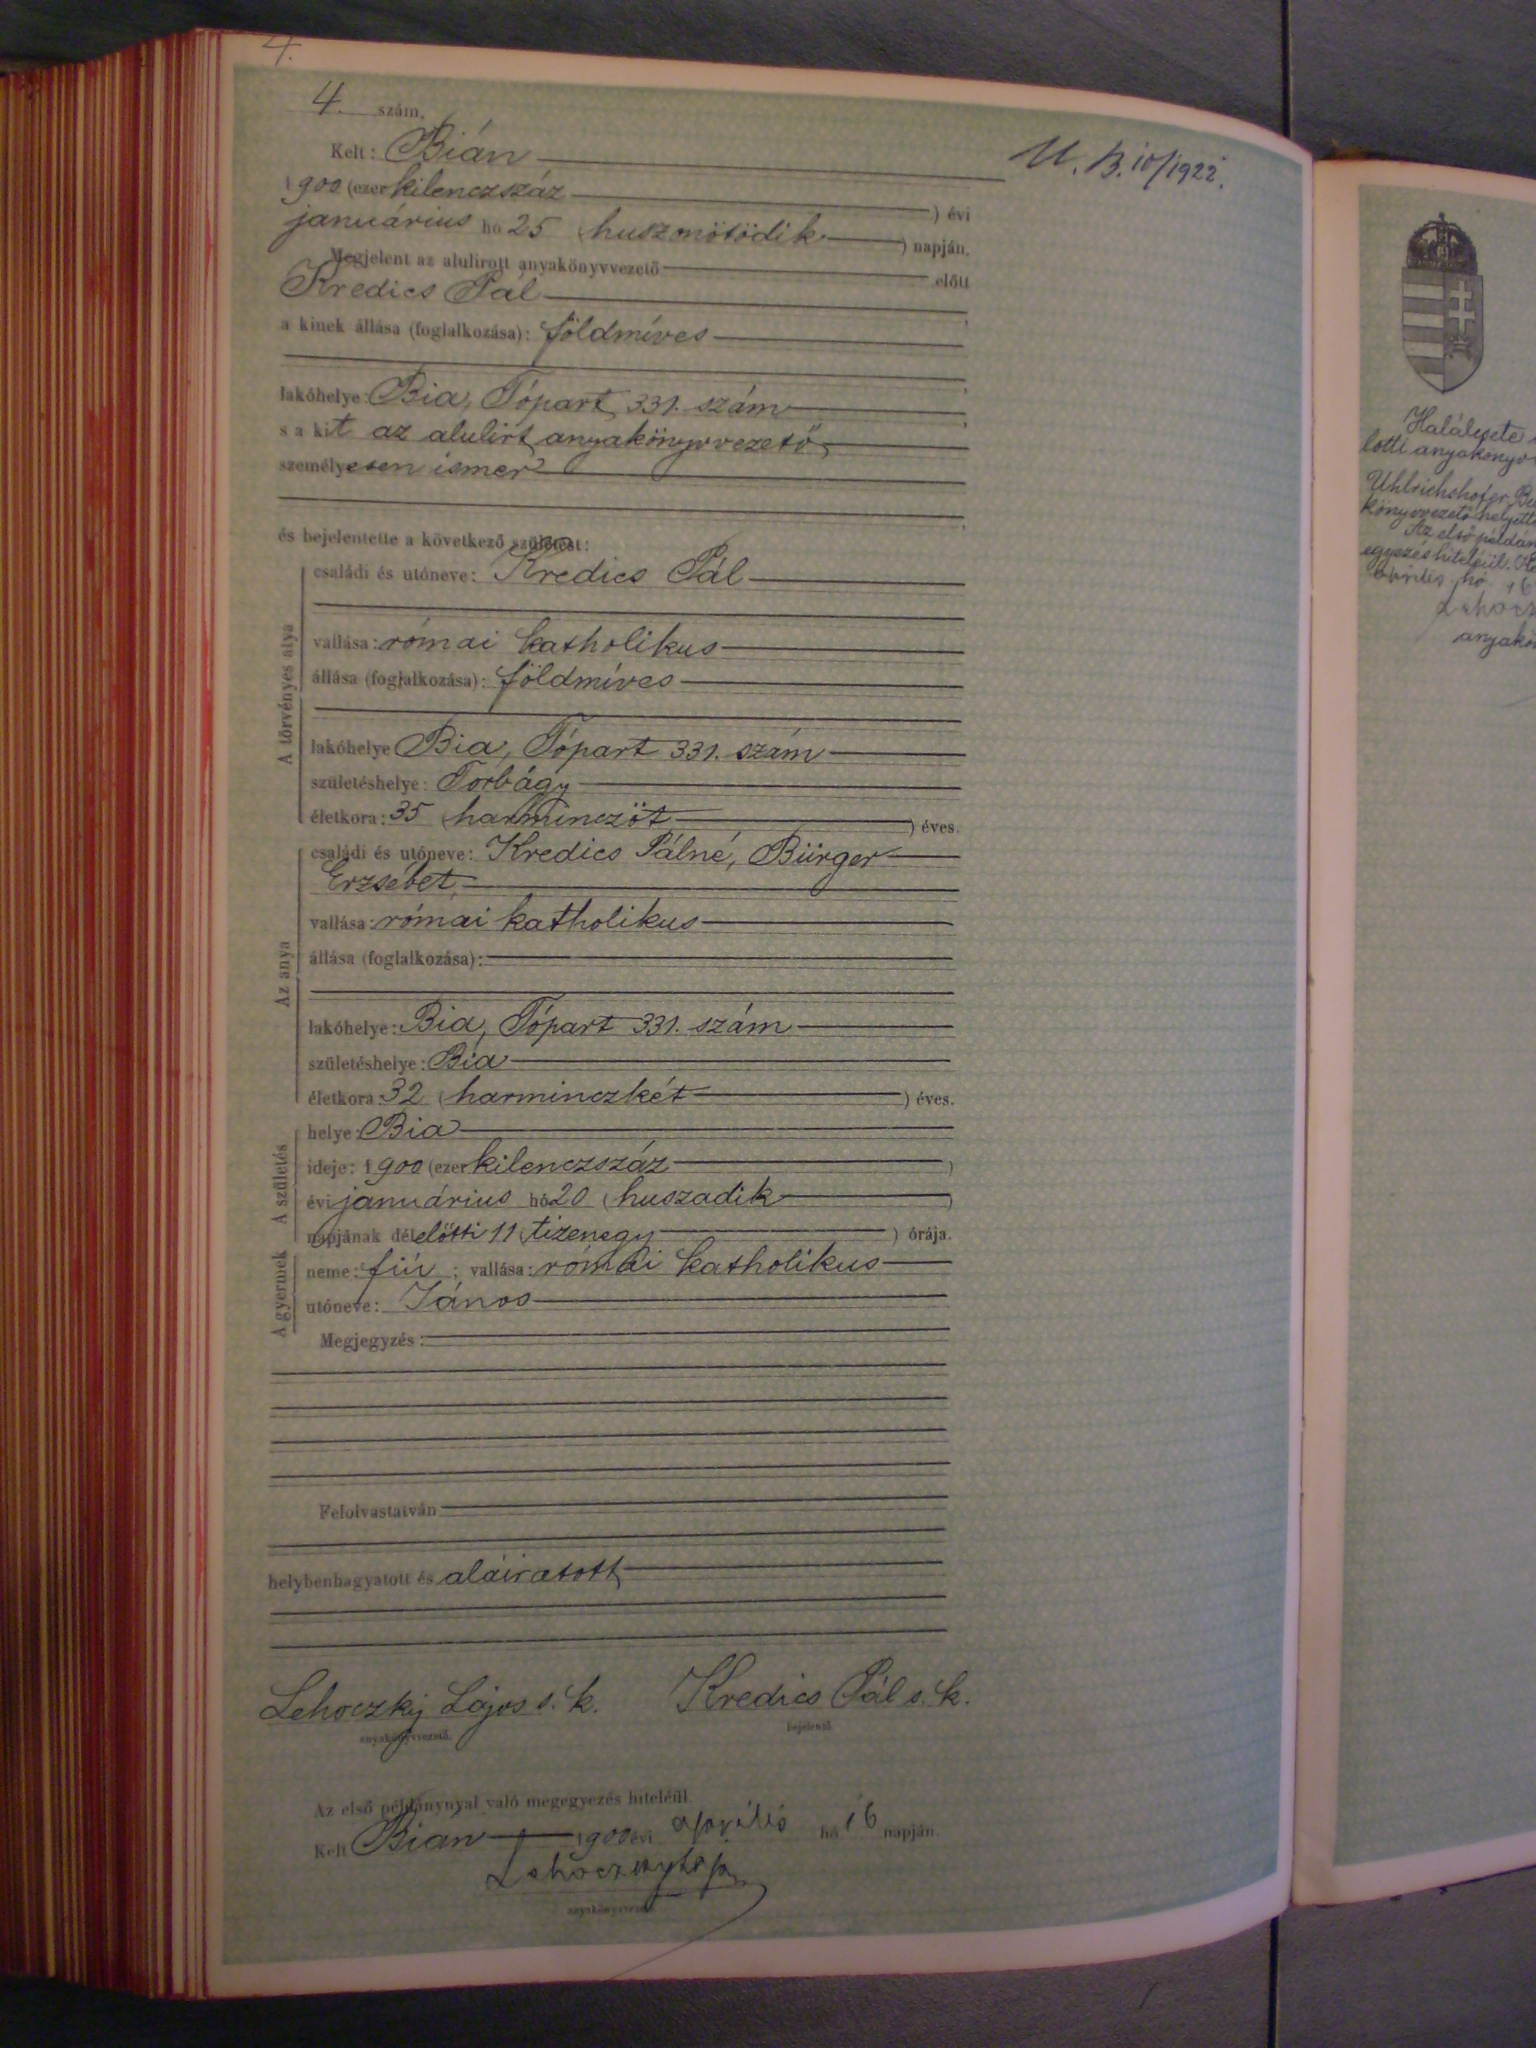 4.
4. szám.
U. B. 10/1922.
Kelt: Bián
1900 (ezer kilenczszáz ) évi
januárius hó 25 (huszonötödik ) napján.
Megjelent az alulirott anyakönyvvezető előtt
Kredics Pál
a kinek állása (foglalkozása): földmíves
lakóhelye: Bia, Tópart 331. szám
s a kit az alulirt anyakönyvvezető
személyesen ismer
és bejelentette a következő születést:
A törvényes atya
családi és utóneve: Kredics Pál
vallása: római katholikus
állása (foglalkozása): földmíves
lakóhelye Bia, Tópart 331. szám
születéshelye: Torbágy
életkora: 35 (harminczöt ) éves.
Az anya
családi és utóneve: Kredics Pálné, Bürger
Erzsébet
vallása: római katholikus
állása (foglalkozása):
lakóhelye: Bia, Tópart 331. szám
születéshelye: Bia
életkora: 32 (harminczkét ) éves.
A születés
helye: Bia
ideje: 1900 (ezer kilenczszáz )
évi januárius hó 20 (huszadik )
napjának délelőtti 11 (tizenegy ) órája.
A gyermek
neme: fiú ; vallása: római katholikus
utóneve: János
Megjegyzés:
Felolvastatván
helybenhagyatott és aláiratott
Lehoczky Lajos s. k. Kredics Pál s. k.
anyakönyvvezető. bejelentő
Az első példánynyal való megegyezés hiteléül.
Kelt Bián 1900 évi április hó 16 napján.
Lehoczky Lajos
anyakönyvvezető.
Halálesete
lotti anyakönyv
Uhlrichshofer
könyvvezető helyett
Az első példán
egyezés hiteléül.
április hó 16
Lehocz
anyakön